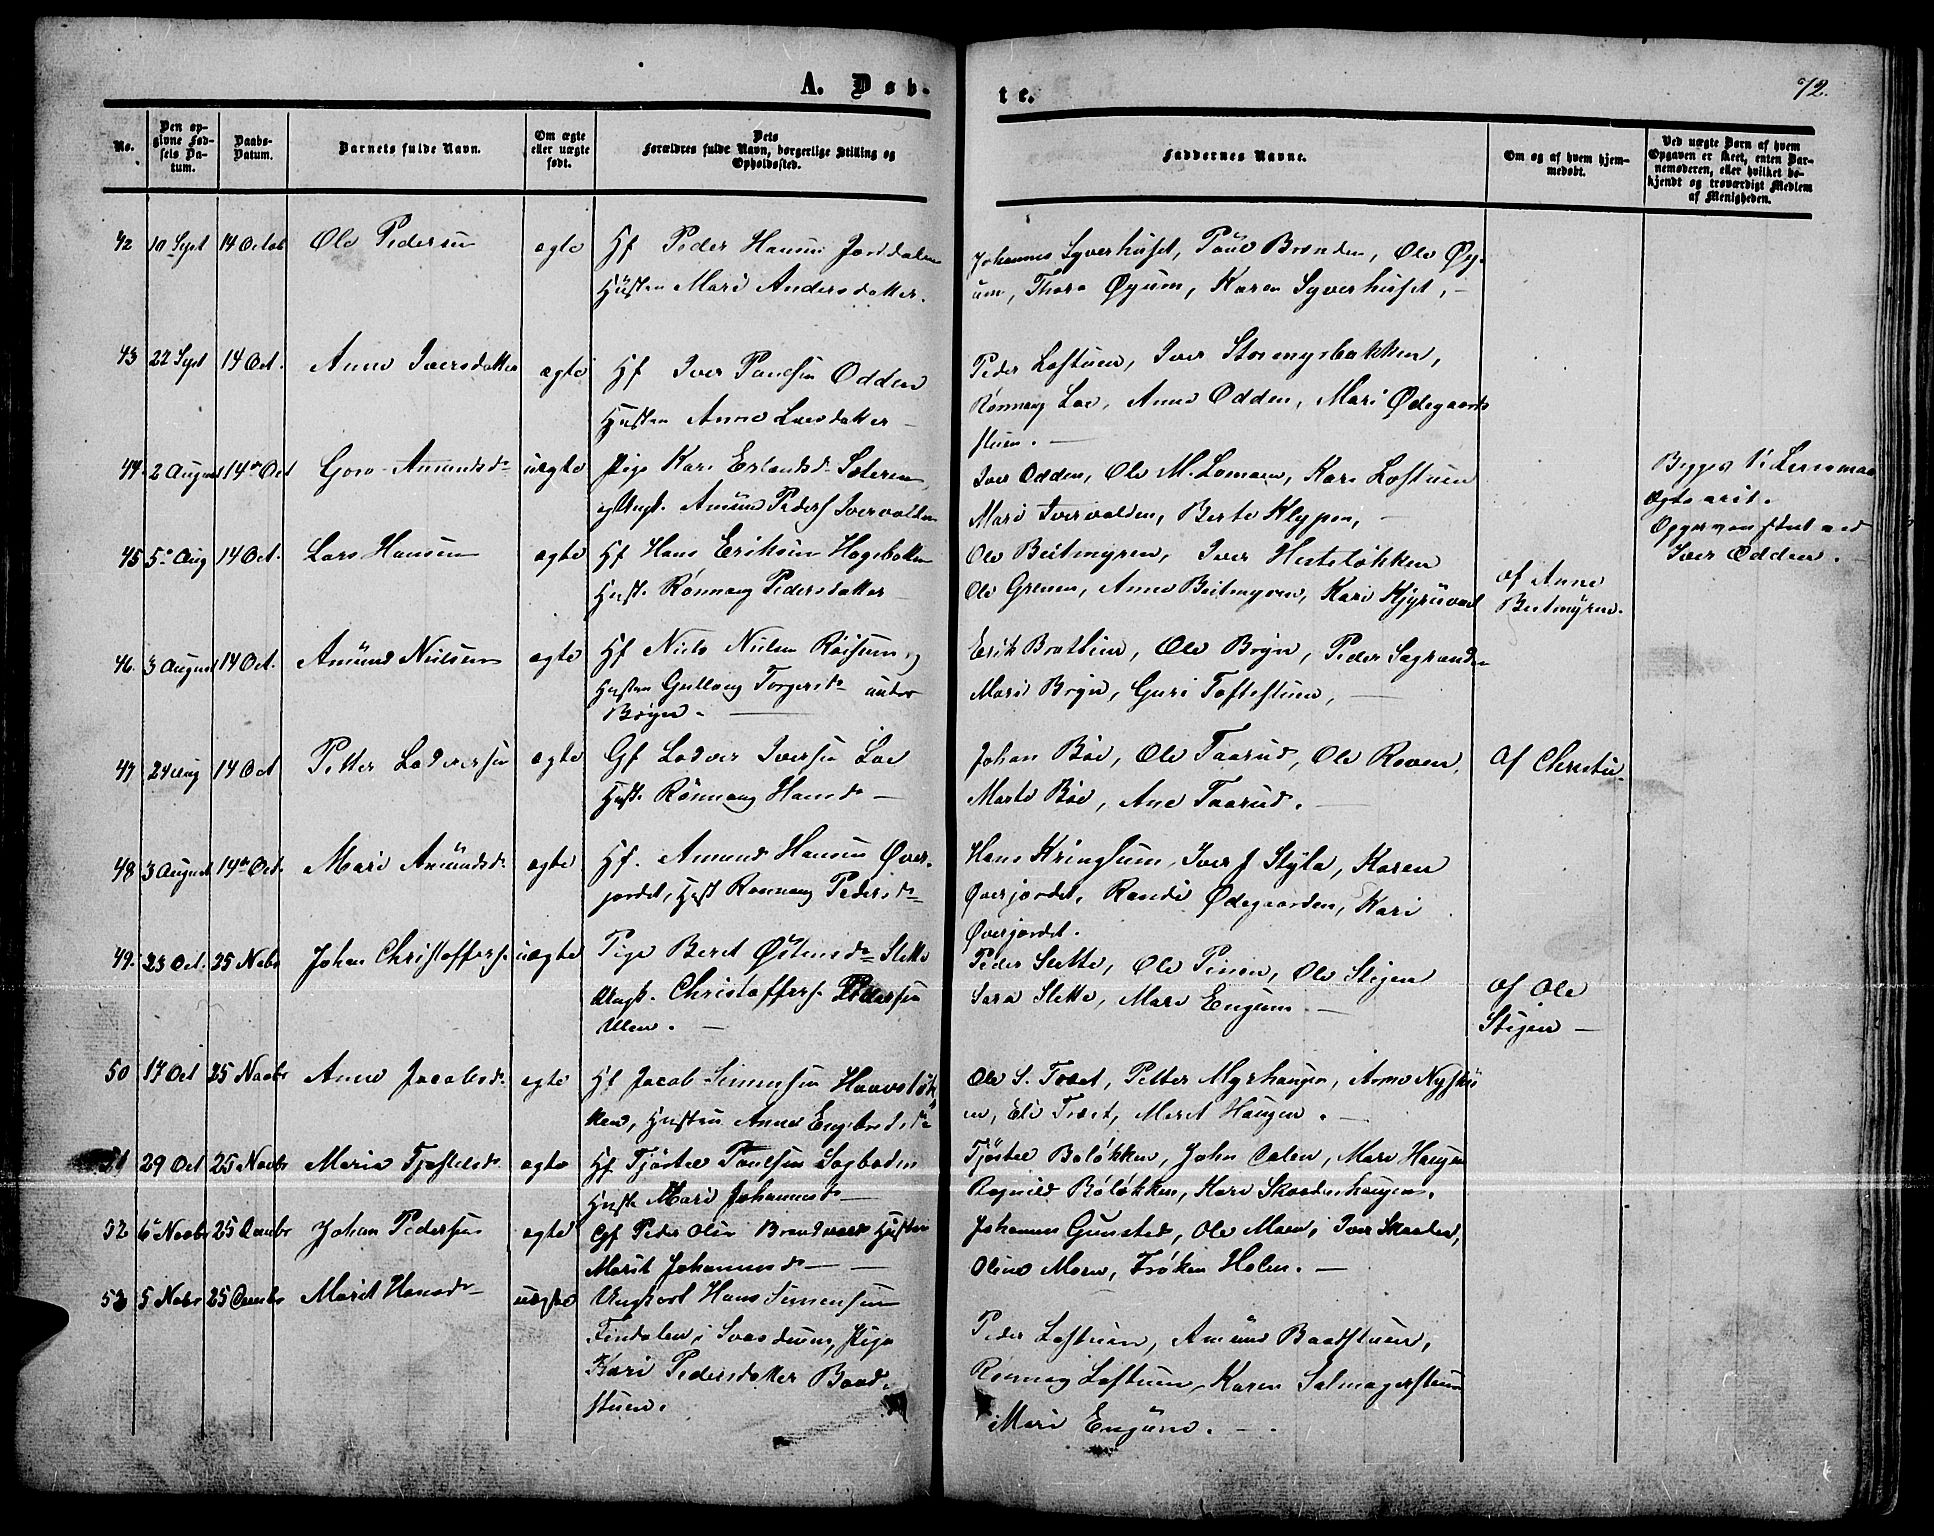 A. Døb-
te.
72.
No.
Den op-
givne Fød-
sels Da-
tum.
Daabs-
Datum.
Barnets fulde Navn.
Om ægte
eller uægte
født.
Dets
Forældres fulde Navn, borgerlige Stilling og
Opholdssted.
Faddernes Navne.
Om og af hvem hjem-
medøbt.
Ved uægte Børn af hvem
Opgaven er skeet, enten Bar-
nemoderen, eller hvilket be-
kjendt og troværdigt Medlem
af Menigheden.
42 10 Sept 14 Octob Ole Pedersen ægte Hf Peder Hansen Jordalen
Husten Mari Andersdatter.
Johannes Syverhuset, Poul Brenden, Ole Øy-
um, Thore Øyum, Karen Syverhuset, -
43 22 Sept 14 Oct. Anne Iversdatter ægte Hf Iver Paulsen Odden
Husten Anne Larsdatter -
Peder Loftuen, Iver Stormyrbakken,
Rønnaug Loe, Anne Odden, Mari Ødegaards
stuen. -
44. 2 August 14de Oct Goro Amundsdr uægte Pige Kari Erlandsdr Sæteren
og Ungk. Amund Peders Ivervolden
Iver Odden, Ole M. Lomoen, Kari Loftuen
Mari Ivervolden, Berte Klypen, -
Begges
Ægte
Iver Odden. -
45 5 Aug 14 Oct. Lars Hansen ægte Hf Hans Eriksen Hagebakken
Hust. Rønnaug Pedersdatter -
Ole Beitmyren, Iver Hesteløkken
Ole Grenen, Anne Beitmyren, Kari
af Anne
Beitmyren.
46. 3 August 14 Oct. Amund Nielsen ægte Hf Niels Nielsen Røisum,
Husten Gulloug Torgersdr under
Bryn. -
Erik Brattien, Ole Bryn, Peder Sagranden
Mari Bryn, Guri Toftestuen, -
47 24 Aug 14 Oct Petter Lodversen ægte Gf Lodver Iversen Loe
Hust. Rønnaug Hansdr -
Johan Bøe, Ole Taarud, Ole Roven,
Marte Bøe, Ane Taarud. -
Af Christie
48 3 August 14de Oct. Mari Amundsdr ægte Hf. Amund Hansen Øver-
jordet, Hust Rønnaug Pedersdr
Hans Kringlum, Iver J Styla, Karen
Øverjordet, Randi Ødegaarden, Kari
Øverjordet.
49. 23 Oct. 25 Nobr Johan Christoffers. uægte Pige Beret Østensdr Slette
Ungk. Christoffer Pedersen
Ulen. -
Peder Slette, Ole Ole Stigen
Sara Slette, Mari Engum -
af Ole
Stigen -
50 17 Oct 25 Novbr Anne Jacobsdr ægte Hf Jacob Simensen Haavsløk-
ken, Husten Anne Engebretsdr
Ole S. Træet, Petter Myrhaugen, Anne Nystu
en, Eli Træet, Marit Haugen. -
51 29 Oct 25 Novbr Maria Tjøstelsdr ægte Hf Tjøstel Paulsen Bagboden
Huste Mari Johannesdr -
Tjøstel Boløkken, John Mari Haugen
Ragnild Boløkken, Kari Skaadenhaugen.
52 6 Novbr 25 Decbr Johan Pedersen ægte Gf Peder Olsen Brandvold Husten
Marit Johannesdr -
Johannes Gunstad, Ole Moen, Iver Skaaden,
Oline Moen, Frøken Holen. -
53 5 Nobr 25 Decbr Marit Hansdr uægte Ungkarl Hans Simensen
Findalen i Svatsum, Pige
Kari Pedersdatter Baad-
stuen.
Peder Loftuen, Amund Baadstuen,
Rønnaug Loftuen, Karen Salmagerstuen
Mari Engum. -